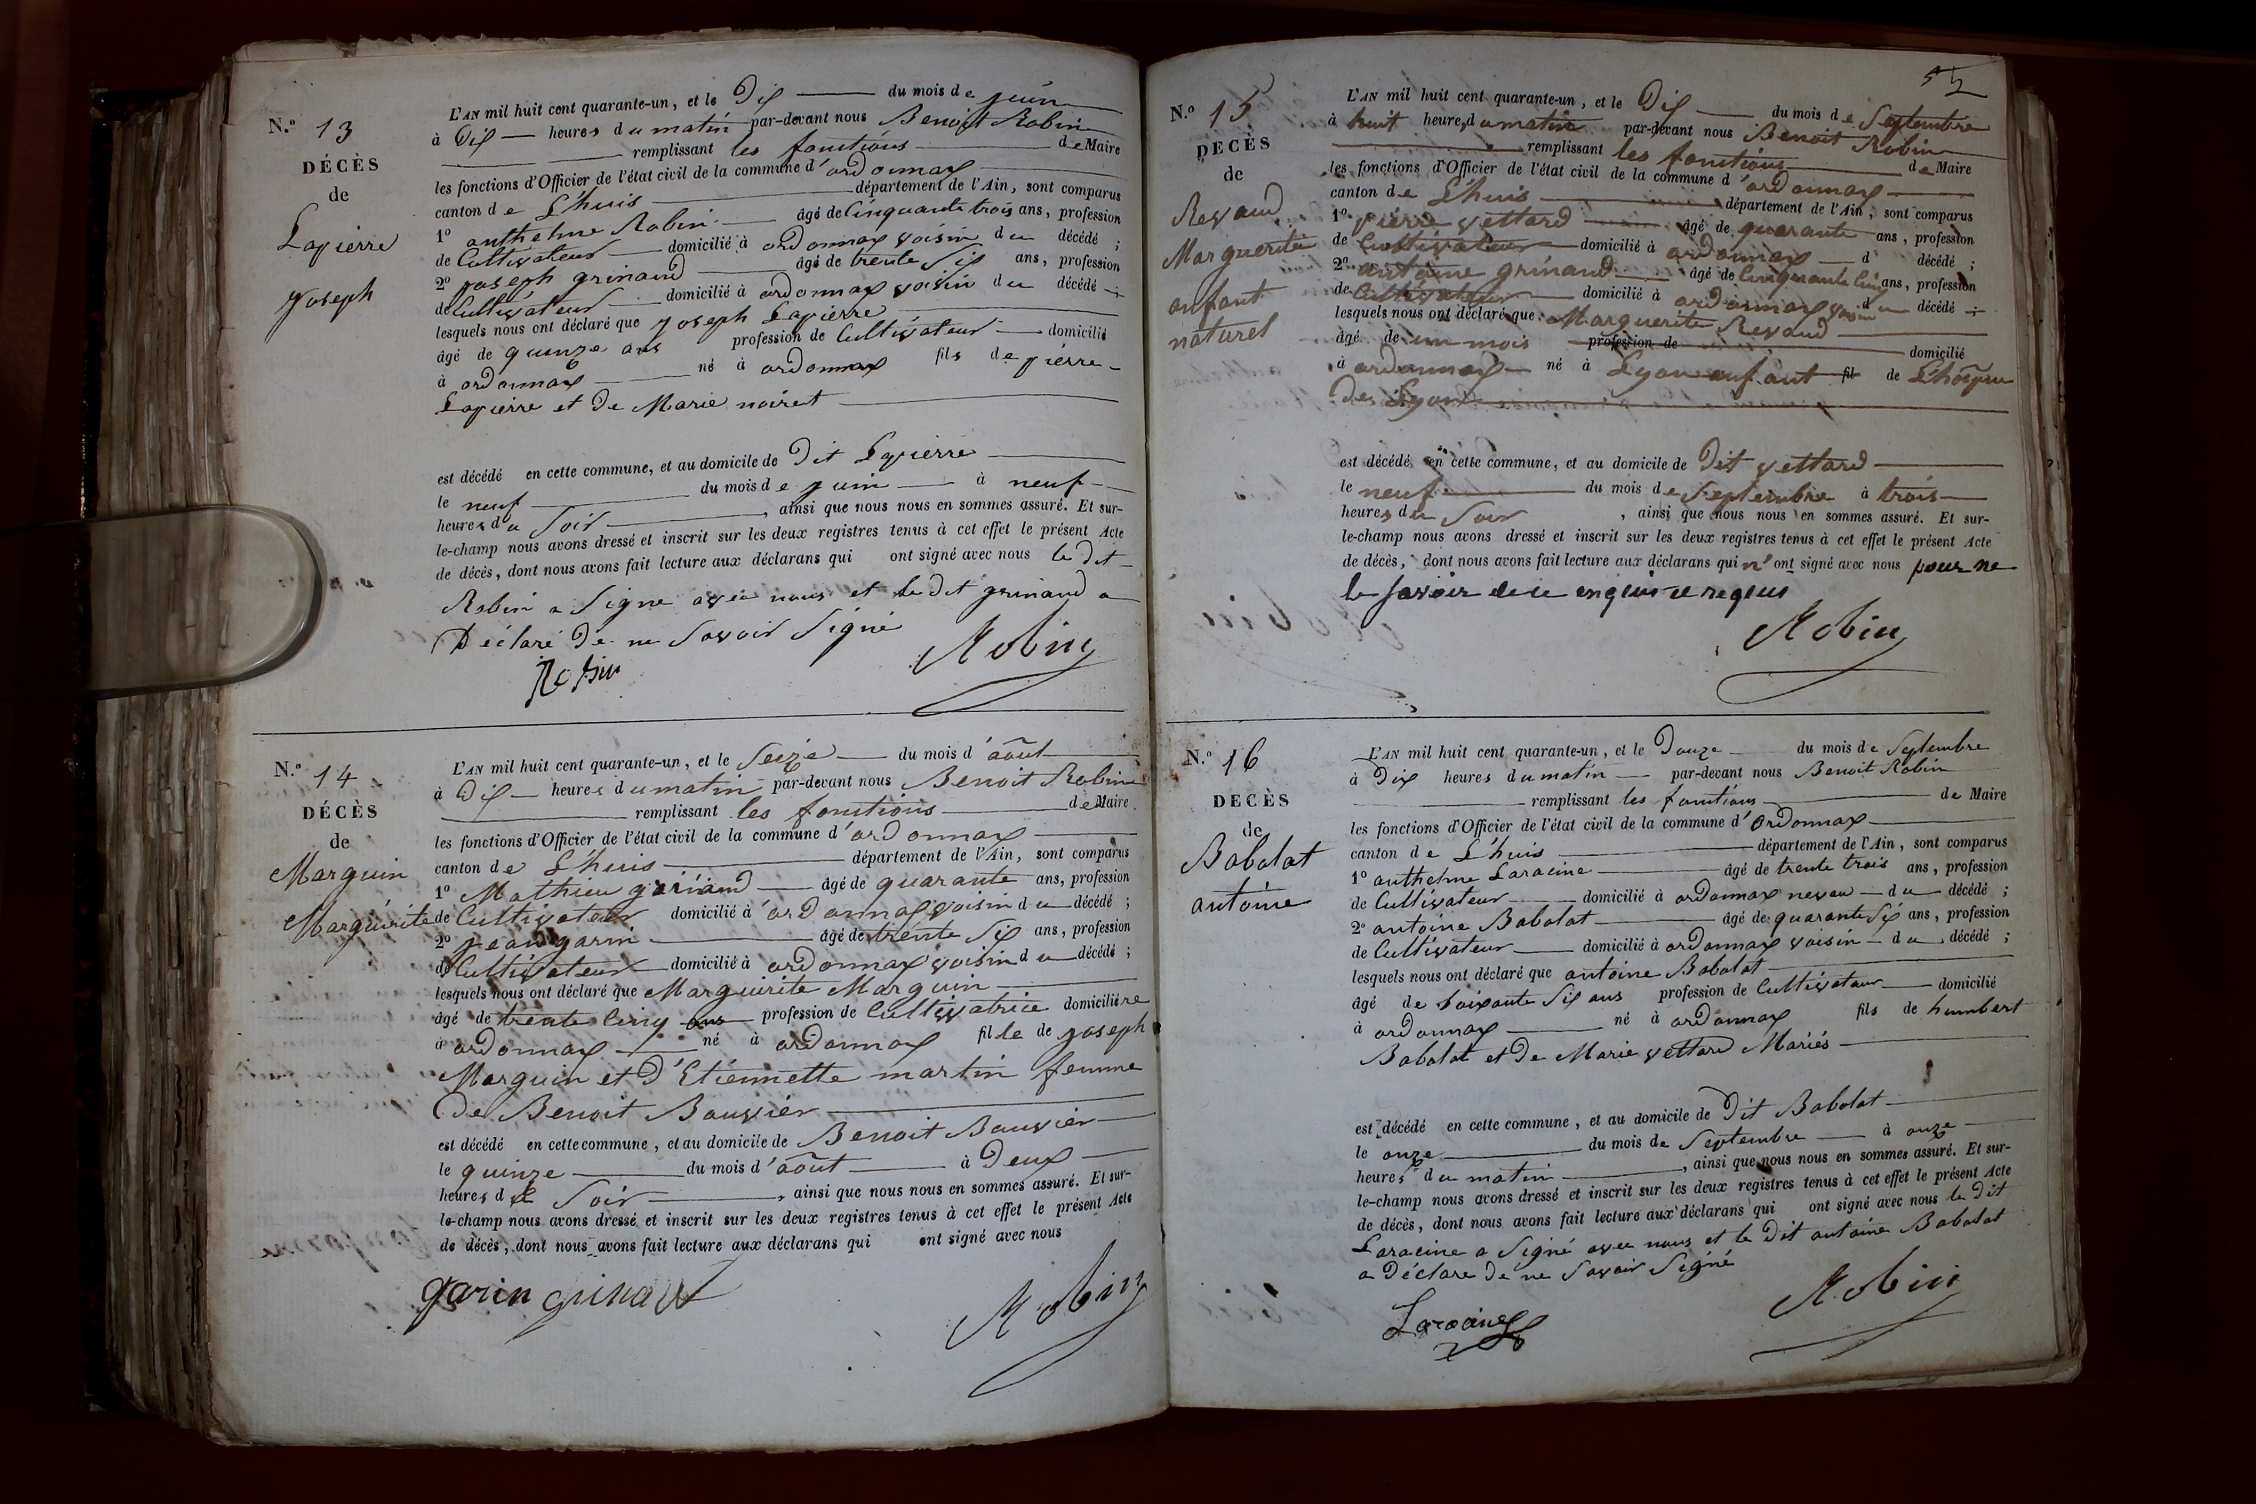 N.° 13
DÉCÈS
de
Lapierre
Joseph
L'AN mil huit cent quarante-un, et le Dix du mois de juin
à Dix heures du matin par-devant nous Benoit Robin
remplissant les fonctions de Maire
les fonctions d'Officier de l'état civil de la commune d'ordonnax
canton de L'huis département de l'Ain, sont comparus
1° anthelme Robin âgé de Cinquante trois ans, profession
de Cultivateur domicilié à ordonnax voisin du décédé ;
2° joseph grinand âgé de trente Six ans, profession
de Cultivateur domicilié à ordonnax voisin du décédé ;
lesquels nous ont déclaré que joseph Lapierre
âgé de quinze ans profession de Cultivateur domicilié
à ordonnax né à ordonnax fils de pierre
Lapierre et De Marie noiret
est décédé en cette commune, et au domicile de Dit Lapierre
le neuf du mois de juin à neuf
heures du Soir, ainsi que nous nous en sommes assuré. Et sur-
le-champ nous avons dressé et inscrit sur les deux registres tenus à cet effet le présent Acte
de décès, dont nous avons fait lecture aux déclarans qui ont signé avec nous le dit
Robin a Signe avec nous et le Dit grinand a
Déclaré De ne Savoir Signé
Robin
Robin
N.° 14
DÉCÈS
de
Marguin
Marguérite
L'AN mil huit cent quarante-un, et le Seize du mois d'août
à Dix heures du matin par-devant nous Benoit Robin
remplissant les fonctions de Maire
les fonctions d'Officier de l'état civil de la commune d'ordonnax
canton de L'huis département de l'Ain, sont comparus
1° Mathieu grinand âgé de quarante ans, profession
de Cultivateur domicilié à ordonnax voisin du décédé ;
2° jean garin âgé de trente Six ans, profession
de Cultivateur domicilié à ordonnax voisin du décédé ;
lesquels nous ont déclaré que Marguerite Marguin
âgé de trente Cinq ans profession de Cultivatrice domiciliére
à ordonnax né à ordonnax fille de joseph
Marguin et D'Etiennette martin femme
De Benoit Bouvier
est décédé en cette commune, et au domicile de Benoit Bouvier
le quinze du mois d'août à Deux
heures de Soir, ainsi que nous nous en sommes assuré. Et sur-
le-champ nous avons dressé et inscrit sur les deux registres tenus à cet effet le présent Acte
de décès, dont nous avons fait lecture aux déclarans qui ont signé avec nous
garin grinand
Robin
N.° 15
DÉCÈS
de
Revaud
Marguerite
enfant
naturel
L'AN mil huit cent quarante-un, et le Dix du mois de Septembre
à huit heures du matin par-devant nous Benoit Robin
remplissant les fonctions de Maire
les fonctions d'Officier de l'état civil de la commune d'ordonnax
canton de L'huis département de l'Ain, sont comparus
1° pierre vettard âgé de quarante ans, profession
de Cultivateur domicilié à ordonnax d décédé ;
2° antoine grinand âgé de Cinquante Cinq ans, profession
de Cultivateur domicilié à ordonnax voisin du décédé ;
lesquels nous ont déclaré que Marguerite Revaud
âgé de un mois profession de domicilié
à ordonnax né à Lyon enfant fil de L'hôpita
De Lyon
est décédé en cette commune, et au domicile de Dit vettard
le neuf du mois de Septembre à trois
heures du Soir, ainsi que nous nous en sommes assuré. Et sur-
le-champ nous avons dressé et inscrit sur les deux registres tenus à cet effet le présent Acte
de décès, dont nous avons fait lecture aux déclarans qui n'ont signé avec nous pour ne
le savoir de ce enquis et requis
Robin
N.° 16
DÉCÈS
de
Babolat
antoine
L'AN mil huit cent quarante-un, et le Douze du mois de Septembre
à Dix heures du matin par-devant nous Benoit Robin
remplissant les fonctions de Maire
les fonctions d'Officier de l'état civil de la commune d'Ordonnax
canton de L'huis département de l'Ain, sont comparus
1° anthelme Laracine âgé de trente trois ans, profession
de Cultivateur domicilié à ordonnax neveu du décédé ;
2° antoine Babolat âgé de quarante Six ans, profession
de Cultivateur domicilié à ordonnax voisin du décédé ;
lesquels nous ont déclaré que antoine Babolat
âgé de Soixante Six ans profession de Cultivateur domicilié
à ordonnax né à ordonnax fils de humbert
Babolat et De Marie vettard Mariés
est décédé en cette commune, et au domicile de Dit Babolat
le onze du mois de Septembre à onze
heures du matin, ainsi que nous nous en sommes assuré. Et sur-
le-champ nous avons dressé et inscrit sur les deux registres tenus à cet effet le présent Acte
de décès, dont nous avons fait lecture aux déclarans qui ont signé avec nous le Dit
Laracine a Signé avec nous et le Dit antoine Babolat
a Déclare De ne Savoir Signé
Laracine
Robin